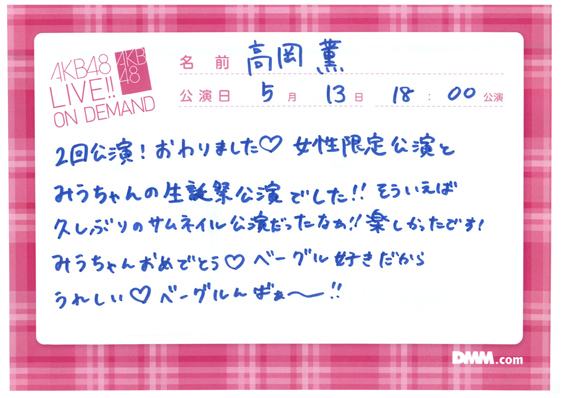 AKB48
LIVE!!
ON DEMAND
AKB
48
名 前 高岡 薫
公演日 5月 13日 18:00公演
2回公演！おわりました♡ 女性限定公演と
みうちゃんの生誕祭公演でした!! そういえば
久しぶりのサムネイル公演だったなぁ!! 楽しかったです！
みうちゃんおめでとう♡ ベーグル好きだから
うれしい♡ ベーグルんばぁ〜!!
DMM.com